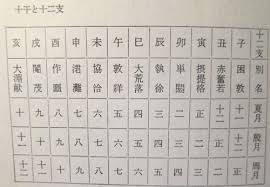 十干と十二支
十二支 別名 夏月 殷月 周月
子 困敦 十一 十二 正
丑 赤奮若 十二 正 二
寅 摂提格 正 二 三
卯 単閼 二 三 四
辰 執徐 三 四 五
巳 大荒落 四 五 六
午 敦牂 五 六 七
未 協洽 六 七 八
申 涒灘 七 八 九
酉 作噩 八 九 十
戌 閹茂 九 十 十一
亥 大淵献 十 十一 十二